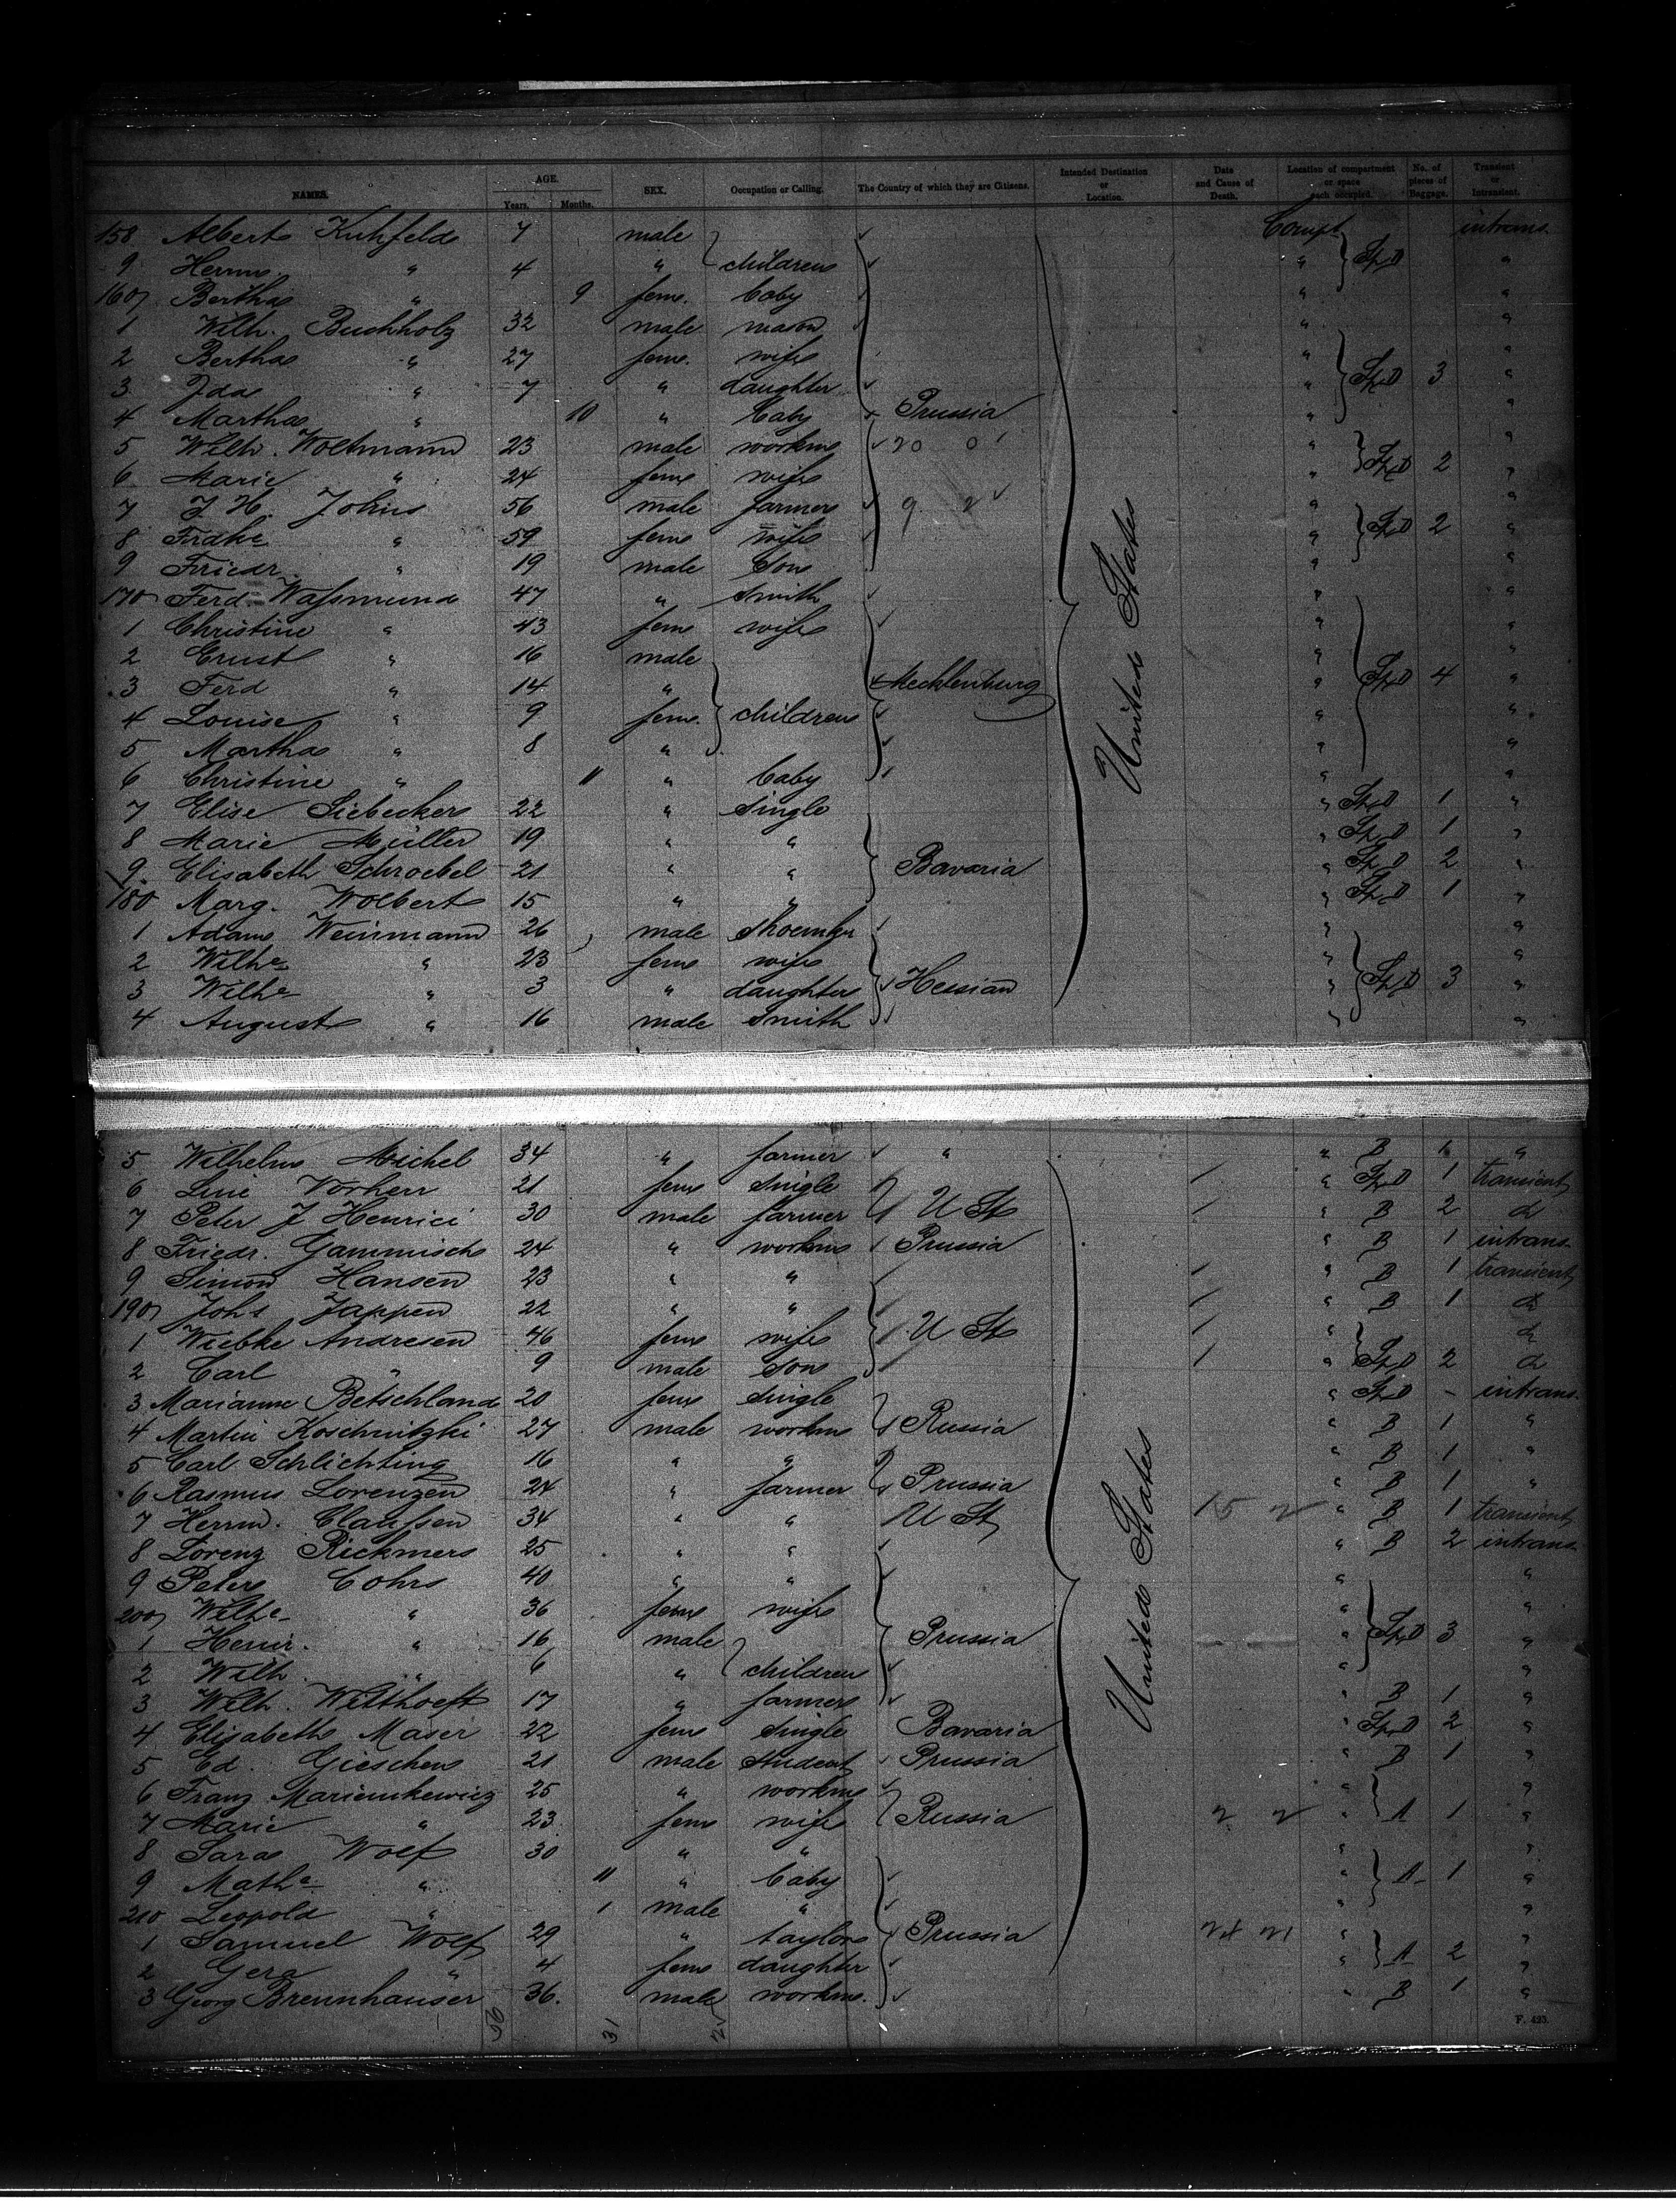 NAMES. AGE. Years. Months. SEX. Occupation or Calling. The Country of which they are Citizens. Intended Destination or Location. Date and Cause of Death. Location of compartment or space each occupied. No. of pieces of Baggage. Transient or Intransient.
158 Albert Kuhfeld 7 male Compt intrans.
9 Herm. " 4 " children " St D "
160 Bertha " 9 fem. baby " "
1 Wilh. Buchholz 32 male mason " "
2 Bertha " 27 fem. wife " "
3 Ida " 7 " daughter " St D 3 "
4 Martha " 10 " baby Prussia " "
5 Wilh. Woltmann 23 male workm 20 0 " "
6 Marie " 24 fem wife " St D 2 "
7 J. H. Johns 56 male farmer 9 2 " "
8 Fridke " 59 fem wife " St D 2 "
9 Friedr. " 19 male Son " "
170 Ferd. Waſsmund 47 " Smith " "
1 Christine " 43 fem wife " "
2 Ernst " 16 male " "
3 Ferd " 14 " Mecklenburg " St D 4 "
4 Louise " 9 fem. children " "
5 Martha " 8 " " "
6 Christine " 11 " baby " "
7 Elise Siebecker 22 " Single " St D 1 "
8 Marie Müller 19 " " " St D 1 "
9 Elisabeth Schroebel 21 " " Bavaria " St D 2 "
180 Marg. Wolbert 15 " " " St D 1 "
1 Adam Weinmann 26 male Shoemkr " "
2 Wilhe " 23 fem wife " "
3 Wilhe " 3 " daughter Hessian " St D 3 "
4 August " 16 male Smith " "
United States
5 Wilhelm Michel 34 " farmer " " B 1 "
6 Line Vorherr 21 fem Single " St D 1 transient
7 Peter J Henrici 30 male farmer U St " B 2 do
8 Friedr. Gammisch 24 " workm Prussia " B 1 intrans.
9 Simon Hansen 23 " " " B 1 transient
190 Johs Jappen 22 " " " B 1 do
1 Wiebke Andresen 46 fem wife U St " do
2 Carl " 9 male Son " St D 2 do
3 Marianne Betschland 20 fem Single " St D - intrans.
4 Martin Koschnitzki 27 male workm Russia " B 1 "
5 Carl Schlichting 16 " " " B 1 "
6 Rasmus Lorenzen 24 " farmer Prussia " B 1 "
7 Herm. Clauſsen 34 " " U St 15 2 " B 1 transient
8 Lorenz Rickmers 25 " " " B 2 intrans.
9 Peter Cohrs 40 " " " "
200 Wilhe " 36 fem wife " "
1 Heinr. " 16 male Prussia " St D 3 "
2 Wilh. " 6 " children " "
3 Wilh. Wilthoeft 17 " farmer " B 1 "
4 Elisabeth Maser 22 fem Single Bavaria " St D 2 "
5 Ed. Gieschen 21 male Student Prussia " B 1 "
6 Franz Marienkewicz 25 " workm " "
7 Marie " 23 fem wife Russia 2 2 " A 1 "
8 Sara Wolf 30 " " " "
9 Mathe " 11 " baby " A 1 "
210 Leopold " 1 male " " "
1 Samuel Wolf 29 " taylor Prussia " "
2 Gera " 4 fem daughter " A 2 "
3 Georg Brennhauser 36. male workm. " B 1 "
United States
31
F. 423.